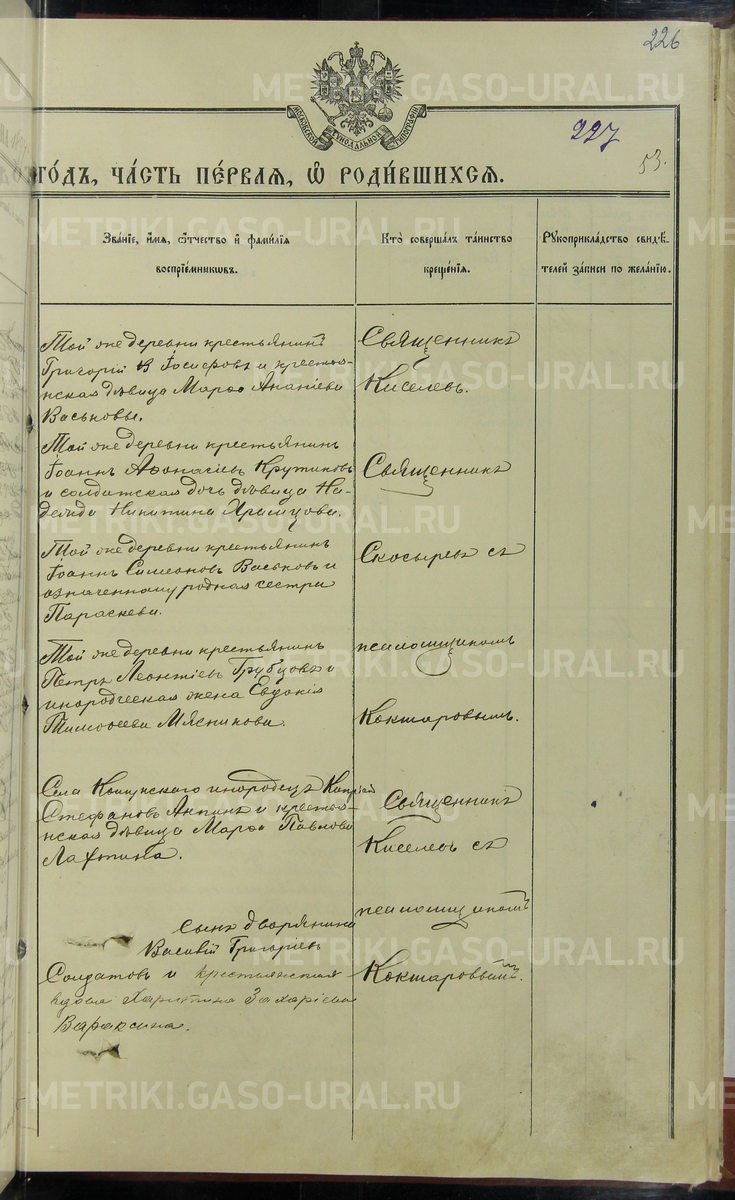 226
МОСКОВСКОЙ СѴНОДАЛЬНОЙ ТИПОГРАФІИ
227
53.
ГО́ДЪ, ЧА́СТЬ ПЕ́РВАЯ, Ѡ РОДИ́ВШИХСЯ.
Зва́нїе, и҆́мя, ѻ҆́тчество и҆ фами́лїя
воспрїе́мникѡвъ.
Кто̀ соверша́лъ та́инство
креще́нїя.
Рꙋкоприкла́дство свидѣ́-
телей за́писи по жела́нїю.
Той же деревни крестьянинъ
Григорій Іосифовъ и крестья-
нская дѣвица Марѳа Ананіева
Васьковы.
Священникъ
Киселевъ.
Той же деревни крестьянинъ
Іоаннъ Аѳанасіевъ Крутиковъ
и солдатская дочь дѣвица На-
дежда Никитина Храмцова.
Священникъ
Той же деревни крестьянинъ
Іоаннъ Симеоновъ Васьковъ и
означенному родная сестра
Параскева.
Скосыревъ съ
Той же деревни крестьянинъ
Петръ Леонтіевъ Трубцовъ и
инородческая жена Евдокія
Тимоѳеева Мясникова.
псаломщикомъ
Кокшаровымъ.
Села инородецъ
Стефановъ Аипинъ и крестья-
нская дѣвица Марѳа Павлова
Лахтина.
Священникъ
Киселевъ съ
Сынъ дворянина
Василій Григоріевъ
Солдатовъ и крестьянская
вдова Харитина Захаріева
Вараксина.
псаломщикомъ
Кокшаровымъ.
METRIKI.GASO-URAL.RU